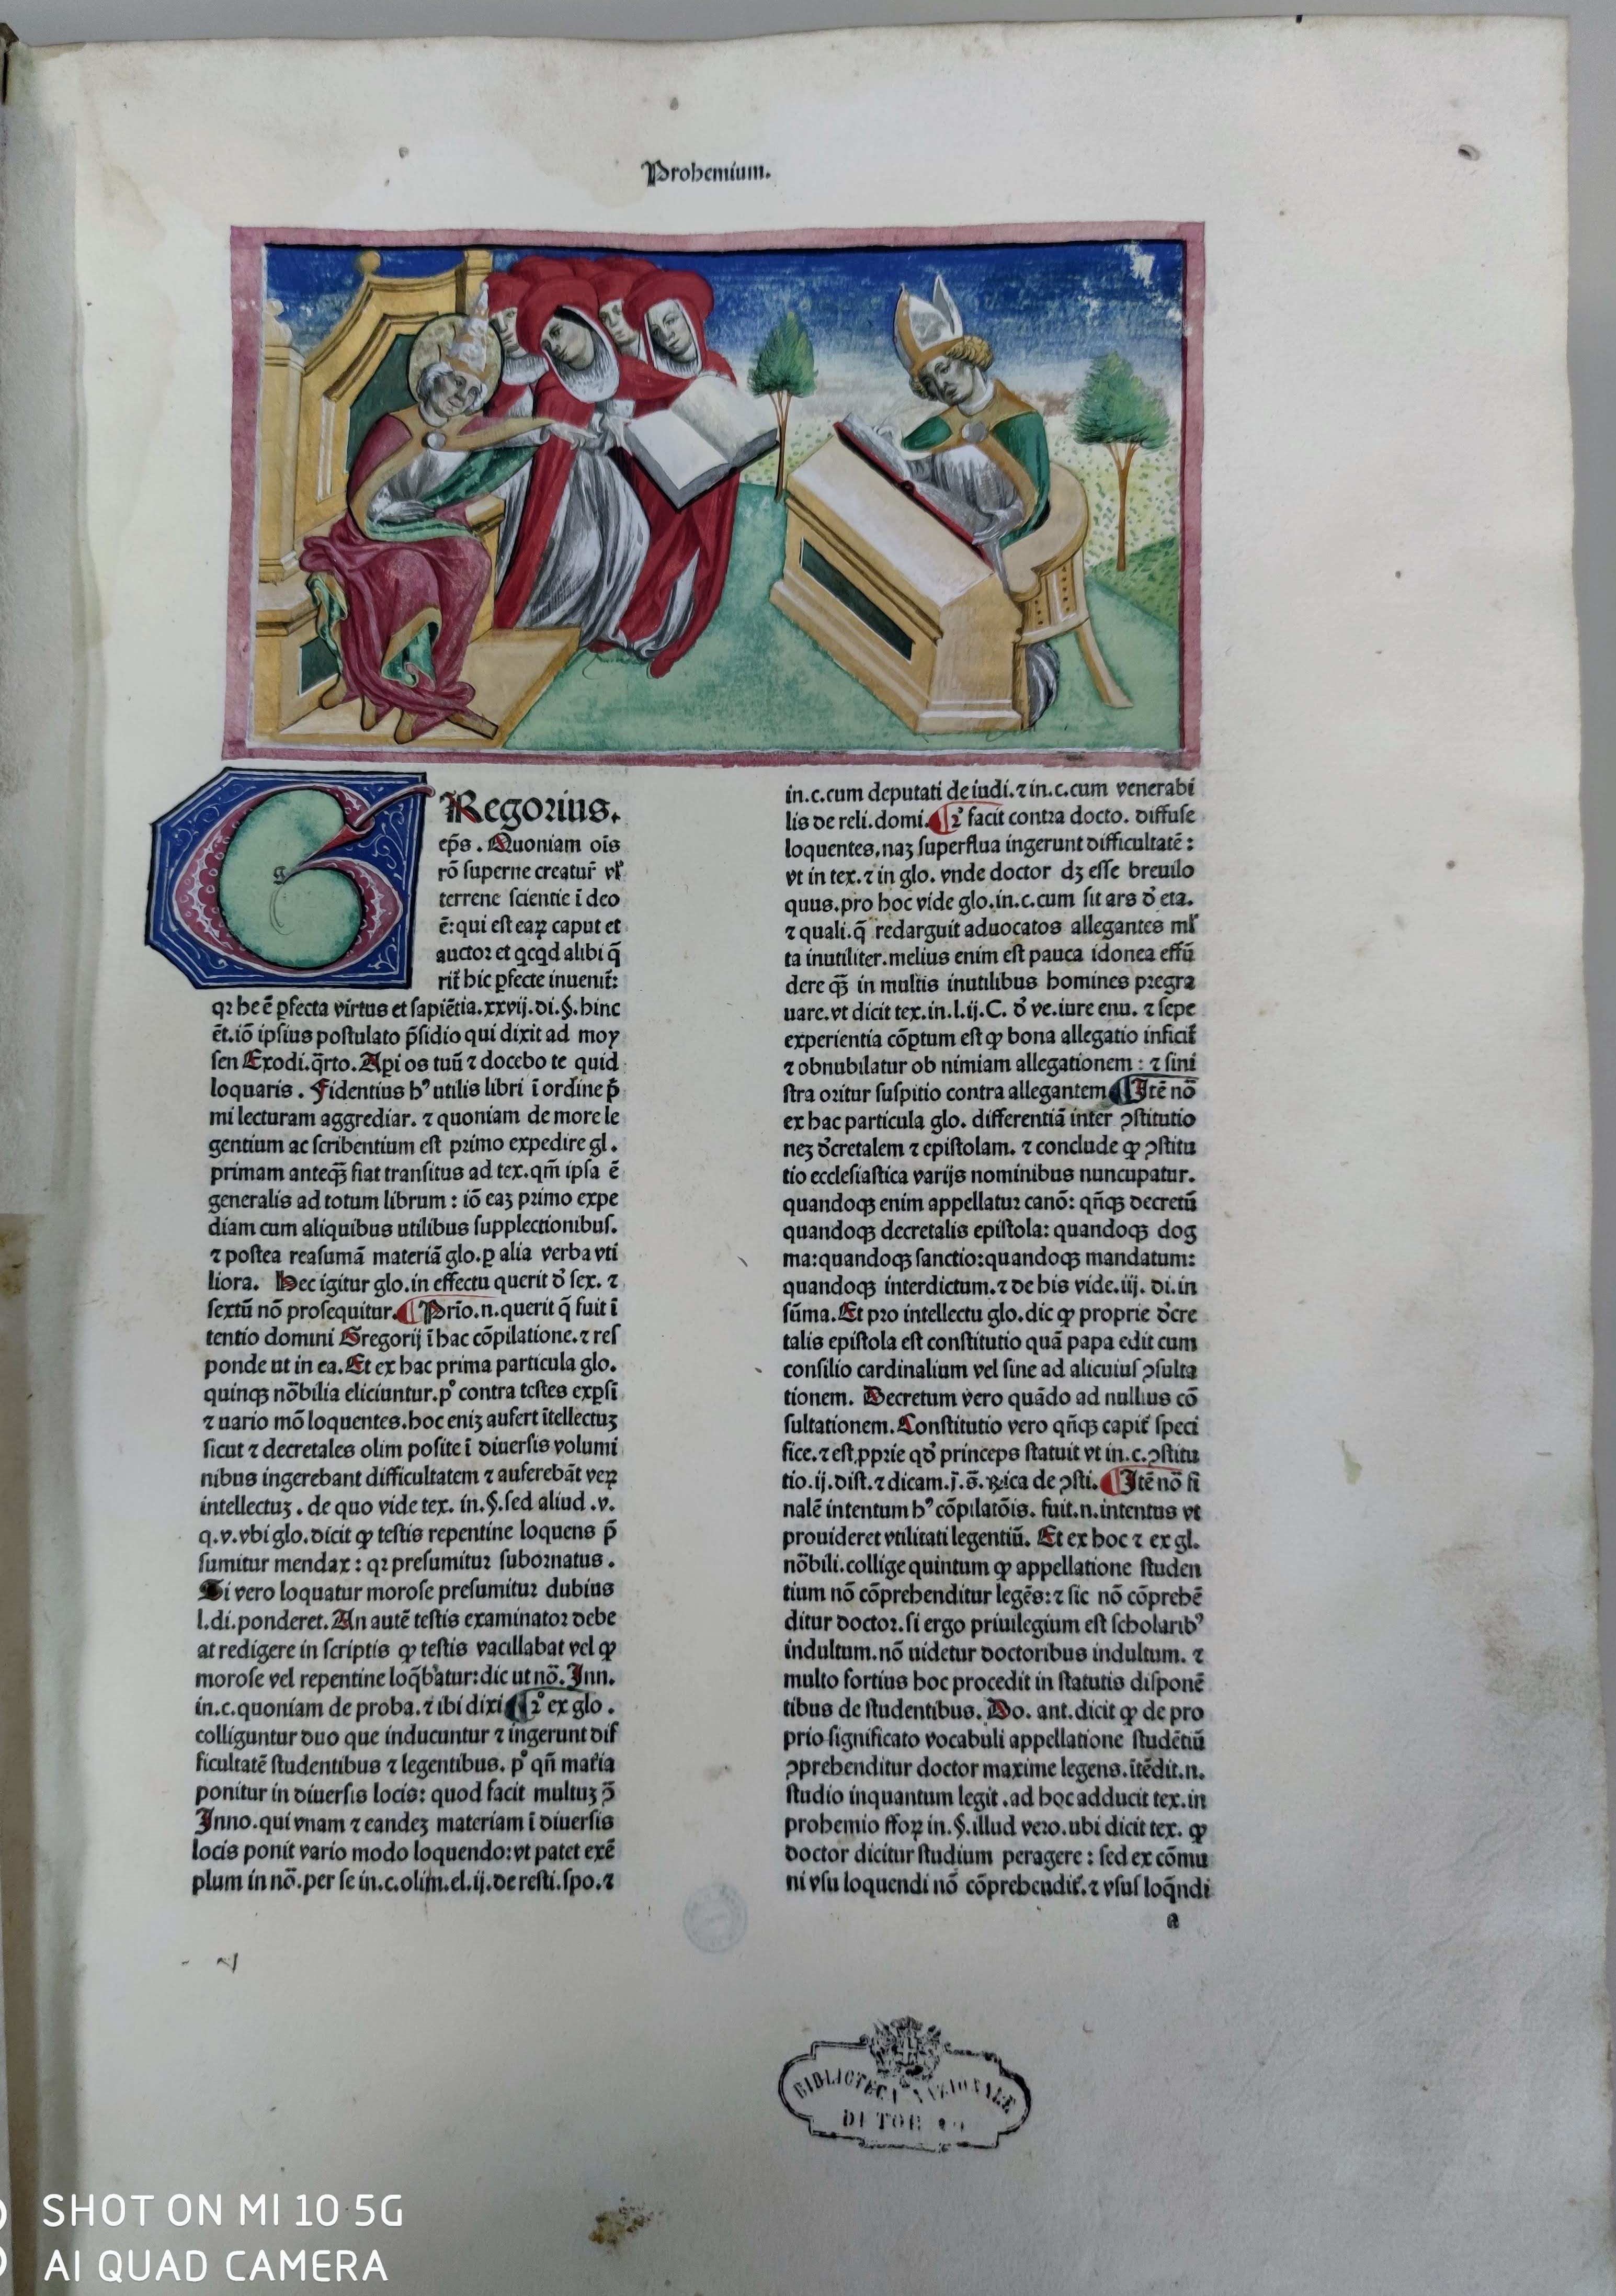 Prohemium.
GRegorius.
ep̄s . Quoniam oīs
rō superne creatur̄ vl̓
terrene scientie ī deo
ē: qui est eaꝝ caput et
auctor et qcqd alibi q̄
rit̄ hic ꝑfecte inuenit̄:
qꝛ he ē ꝑfecta virtus et sapiētia.xxvij.di.§.hinc
ēt.iō ipsius postulato p̄sidio qui dixit ad moy
sen Exodi.q̄rto. Aꝑi os tuū ⁊ docebo te quid
loquaris . Fidentius hꝰ utilis libri ī ordine p̄
mi lecturam aggrediar. ⁊ quoniam de more le
gentium ac scribentium est primo expedire gl .
primam anteqꝫ fiat transitus ad tex.qm̄ ipsa ē
generalis ad totum librum : iō eaꝫ primo expe
diam cum aliquibus utilibus supplectionibus.
⁊ postea reasumā materiā glo.ꝑ alia verba vti
liora. Hec igitur glo.in effectu querit ď sex. ⁊
sextū nō prosequitur. ¶ Prīo.n.querit q̄ fuit ī
tentio domini Gregorij ī hac cōpilatione.⁊ res
ponde ut in ea. Et ex hac prima particula glo.
quinqꝫ nōbilia eliciuntur.pº contra testes exp̄si
⁊ uario mō loquentes.hoc eniꝫ aufert ītellectuꝫ
sicut ⁊ decretales olim posite ī diuersis volumi
nibus ingerebant difficultatem ⁊ auferebāt veꝝ
intellectuꝫ . de quo vide tex. in.§.sed aliud .v.
q.v.vbi glo.dicit ꝙ testis repentine loquens p̄
sumitur mendax : qꝛ presumitur subornatus .
Si vero loquatur morose presumitur dubius
l.di.ponderet. An autē testis examinator debe
at redigere in scriptis ꝙ testis vacillabat vel ꝙ
morose vel repentine loq̄b̓atur: dic ut nō. Inn.
in.c.quoniam de proba.⁊ ibi dixi ¶ 2º ex glo .
colliguntur duo que inducuntur ⁊ ingerunt dif
ficultatē studentibus ⁊ legentibus. pº qn̄ mat̓ia
ponitur in diuersis locis: quod facit multuꝫ ɔ̄
Inno.qui vnam ⁊ eandeꝫ materiam ī diuersis
locis ponit vario modo loquendo: vt patet exē
plum in nō.per se in.c.olim.el.ij.de resti.spo.⁊
in.c.cum deputati de iudi.⁊ in.c.cum venerabi
lis de reli.domi. ¶ 2º facit contra docto. diffuse
loquentes, naꝫ superflua ingerunt difficultatē :
vt in tex.⁊ in glo. vnde doctor dꝫ esse breuilo
quus.pro hoc vide glo.in.c.cum sit ars ď eta.
⁊ quali.q̄ redarguit aduocatos allegantes ml̓
ta inutiliter.melius enim est pauca idonea effū
dere qꝫ in multis inutilibus homines pregra
uare.vt dicit tex.in.l.ij.C. ď ve.iure enu. ⁊ sepe
experientia cōptum est ꝙ bona allegatio inficit̄
⁊ obnubilatur ob nimiam allegationem : ⁊ sini
stra oritur suspitio contra allegantem ¶ Itē nō
ex hac particula glo. differentiā inter ɔstitutio
neꝫ ďcretalem ⁊ epistolam. ⁊ conclude ꝙ ɔstitu
tio ecclesiastica varijs nominibus nuncupatur.
quandoqꝫ enim appellatur canō: qn̄qꝫ decretū
quandoqꝫ decretalis epistola: quandoqꝫ dog
ma:quandoqꝫ sanctio:quandoqꝫ mandatum:
quandoqꝫ interdictum.⁊ de his vide.iij. di.in
sūma. Et pro intellectu glo.dic ꝙ proprie ďcre
talis epistola est constitutio quā papa edit cum
consilio cardinalium vel sine ad alicuius ɔsulta
tionem. Decretum vero quādo ad nullius cō
sultationem. Constitutio vero qn̄qꝫ capit̄ speci
fice.⁊ est ꝓprie qď princeps statuit vt in.c.ɔstitu
tio.ij.dist.⁊ dicam.j̄.s̄.ꝶica de ɔsti. ¶ Itē nō fi
nalē intentum hꝰ cōpilatōis. fuit.n.intentus vt
prouideret vtilitati legentiū. Et ex hoc ⁊ ex gl.
nōbili.collige quintum ꝙ appellatione studen
tium nō cōprehenditur legēs:⁊ sic nō cōprehē
ditur doctor.si ergo priuilegium est scholaribꝰ
indultum.nō uidetur doctoribus indultum. ⁊
multo fortius hoc procedit in statutis disponē
tibus de studentibus. Do. ant.dicit ꝙ de pro
prio significato vocabuli appellatione studētiū
ɔprehenditur doctor maxime legens.ītēdit.n.
studio inquantum legit .ad hoc adducit tex.in
prohemio ffoꝝ in.§.illud vero.ubi dicit tex. ꝙ
doctor dicitur studium peragere : sed ex cōmu
ni vsu loquendi nō cōprehendit̄.⁊ vsus loq̄ndi
a
BIBLIOTECA NAZIONALE
DI TORINO
SHOT ON MI 10 5G
AI QUAD CAMERA